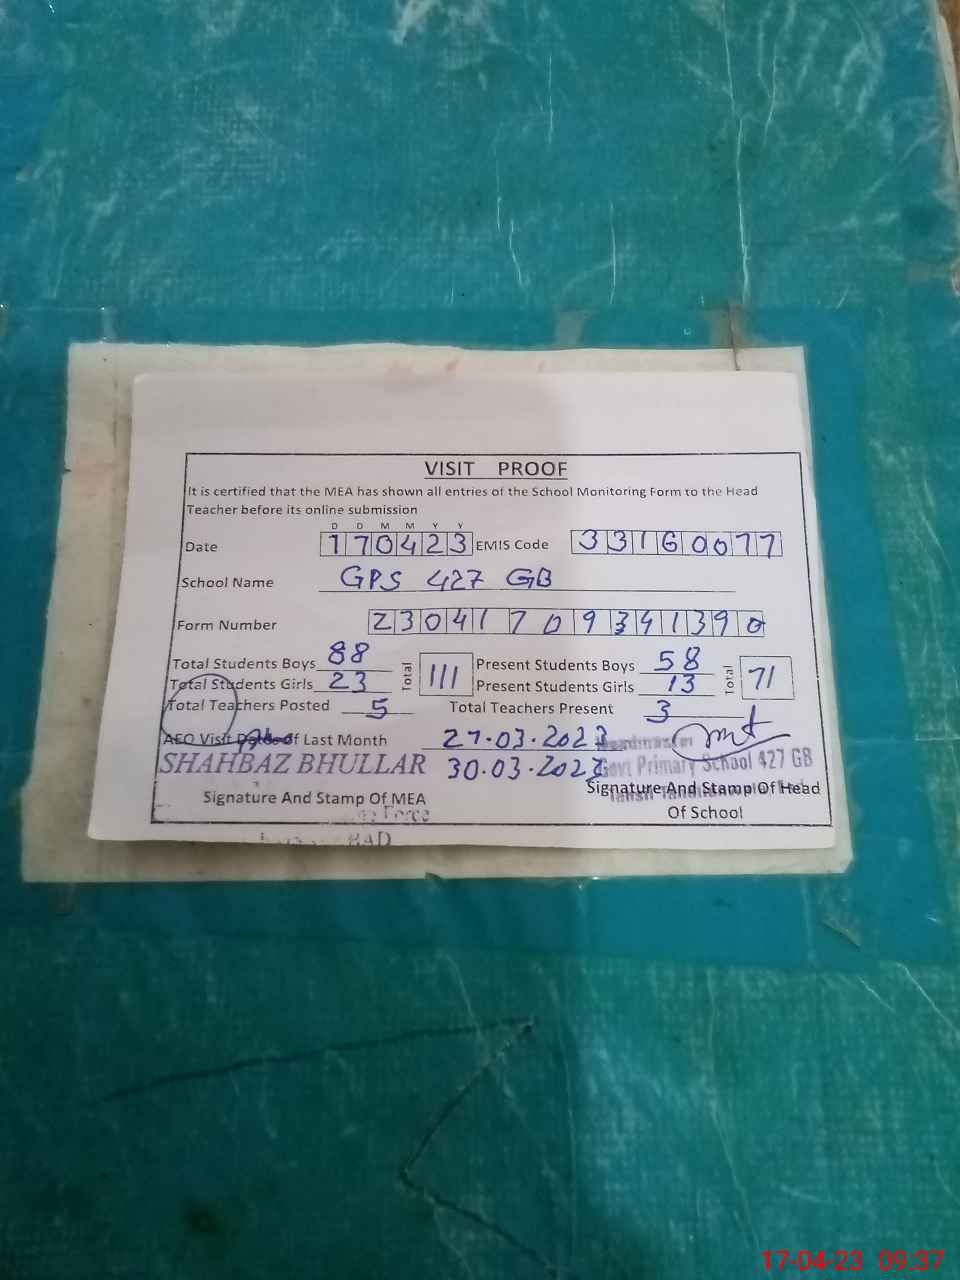 VISIT PROOF
It is certified that the MEA has shown all entries of the School Monitoring Form to the Head
Teacher before its online submission
D D M M Y Y
Date 170423 EMIS Code 33160077
School Name GPS 427 GB
Form Number 23041709341390
Total Students Boys 88 Present Students Boys 58
Total 111 Total 71
Total Students Girls 23 Present Students Girls 13
Total Teachers Posted 5 Total Teachers Present 3
AEO Visit of Last Month 27.03.2023 Headmaster
SHAHBAZ BHULLAR 30.03.2023 Govt Primary School 427 GB
Signature And Stamp Of MEA Signature And Stamp Of Head
Of School
Force
BAD
17-04-23 09:37